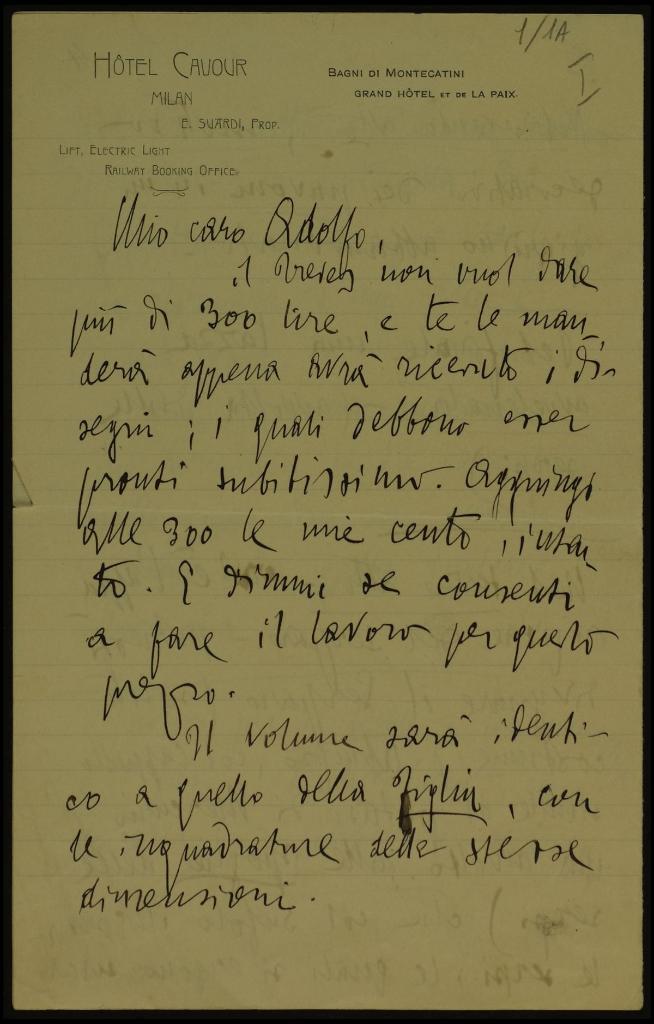 1/1A
I
HÔTEL CAVOUR
MILAN
E. SUARDI, PROP.
LIFT, ELECTRIC LIGHT
RAILWAY BOOKING OFFICE.
BAGNI DI MONTECATINI
GRAND HÔTEL ET DE LA PAIX.
Mio caro Adolfo,
il Treves non vuol dare
più di 300 lire, e te le man
derà appena avrà ricevuto i di-
segni; i quali debbono esser
pronti subitissimo. Aggiungi
alle 300 le mie cento, intan
to. E dimmi se consenti
a fare il lavoro per questo
prezzo.
Il volume sarà identi-
co a quello della Figlia, con
le inquadrature delle stesse
dimensioni.